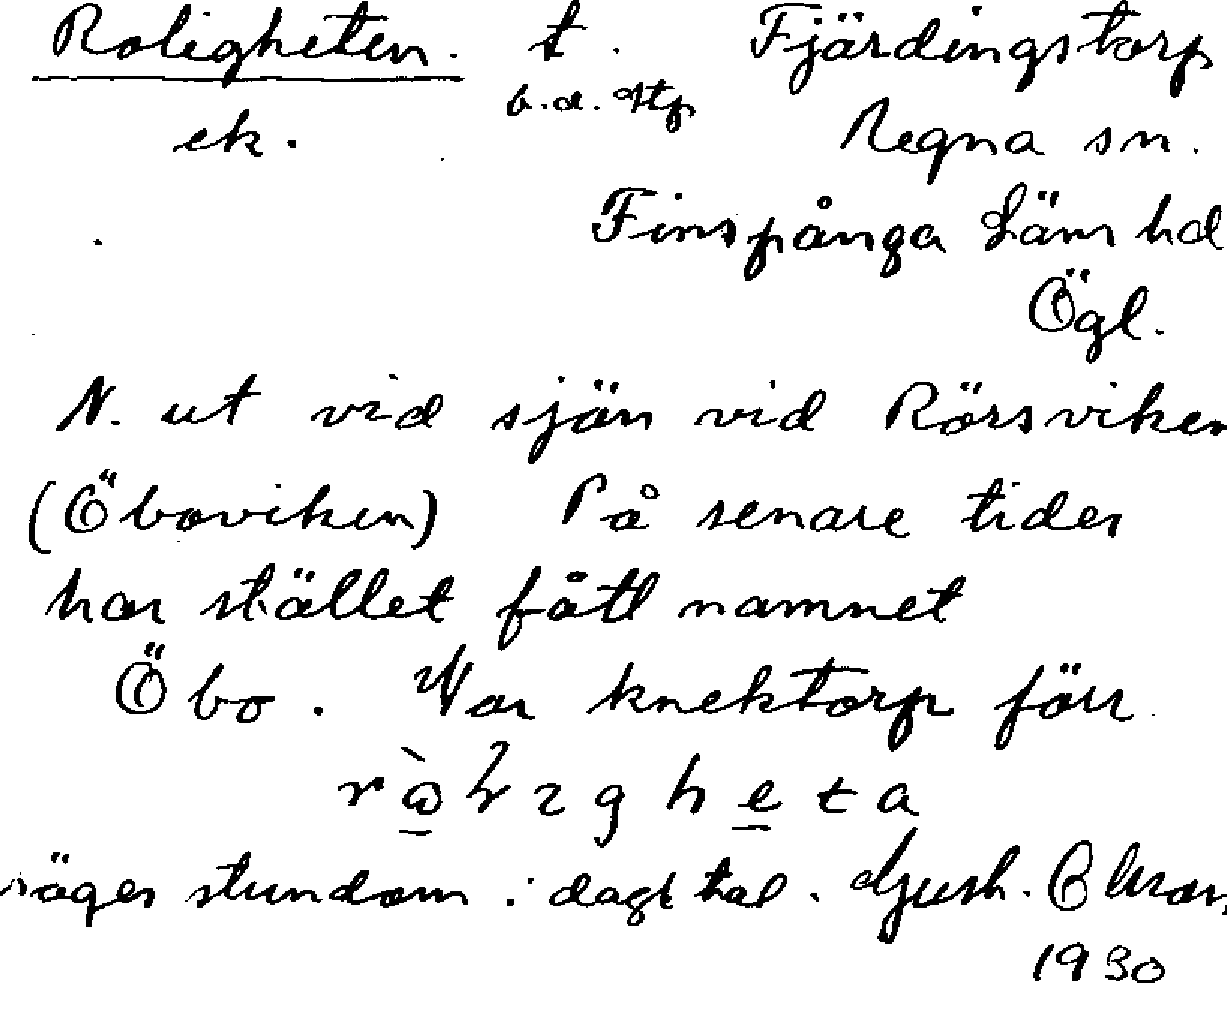 Roligheten. t. Fjärdingstorp
ek. b.d. stp Regna sn.
Finspånga Läns hd
Ögl.
N. ut vid sjön vid Rörsviken
(Öboviken) På senare tider
har stället fått namnet
Öbo. Var knektorp förr.
säges stundom i dagl tal. Ljush.
1930